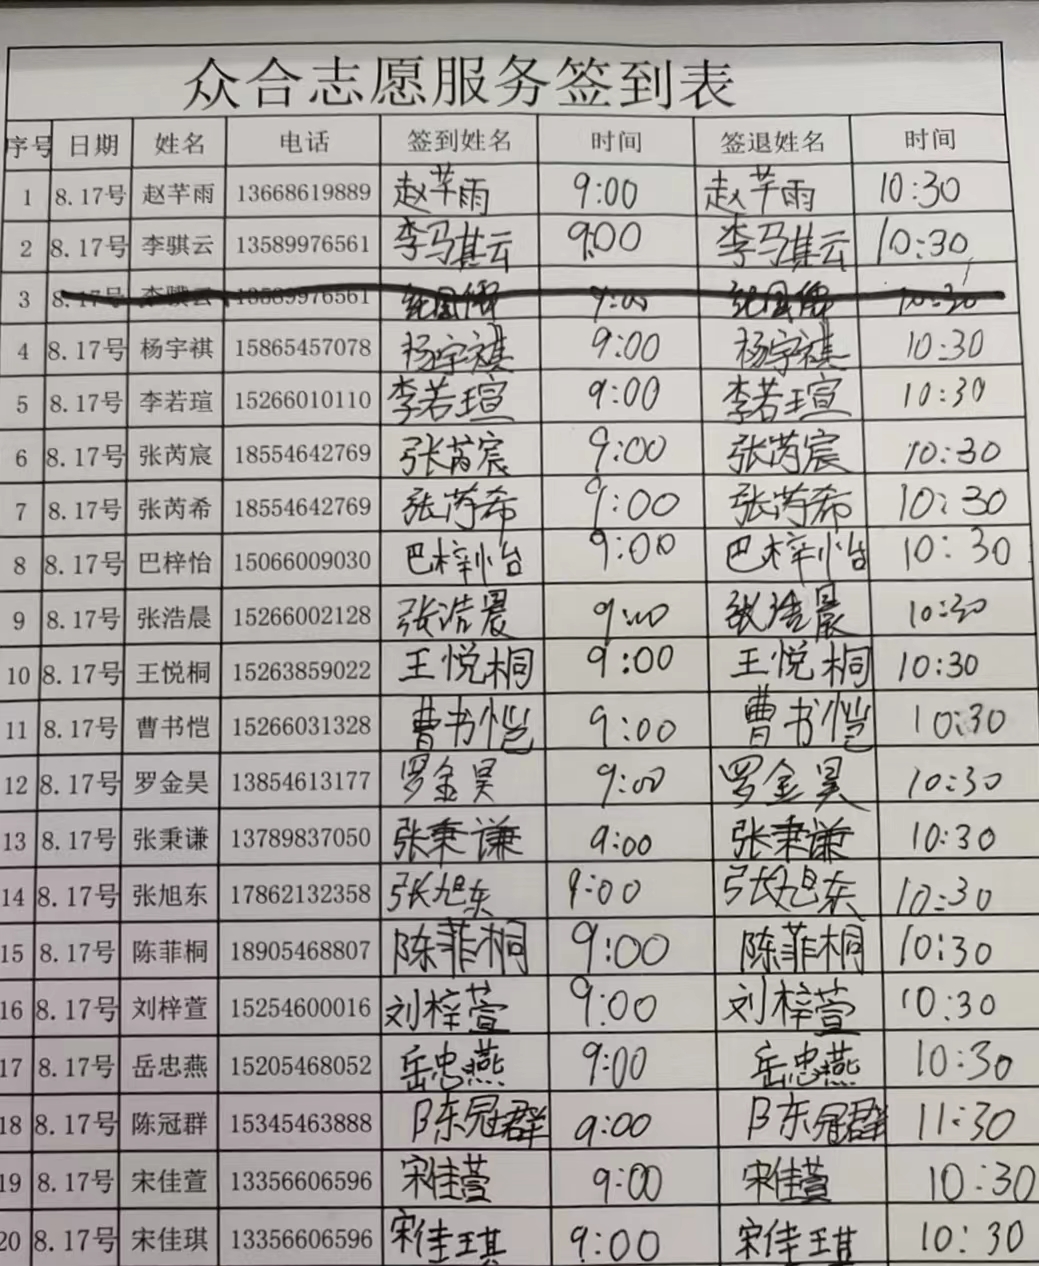 众合志愿服务签到表
序号 日期 姓名 电话 签到姓名 时间 签退姓名 时间
1 8.17号 赵芊雨 13668619889 赵芊雨 9:00 赵芊雨 10:30
2 8.17号 李骐云 13589976561 李骐云 9:00 李骐云 10:30
3 8.17号 李骥云 13589976561 9:00 10:30
4 8.17号 杨宇祺 15865457078 杨宇祺 9:00 杨宇祺 10:30
5 8.17号 李若瑄 15266010110 李若瑄 9:00 李若瑄 10:30
6 8.17号 张芮宸 18554642769 张芮宸 9:00 张芮宸 10:30
7 8.17号 张芮希 18554642769 张芮希 9:00 张芮希 10:30
8 8.17号 巴梓怡 15066009030 巴梓怡 9:00 巴梓怡 10:30
9 8.17号 张浩晨 15266002128 张浩晨 9:00 张浩晨 10:30
10 8.17号 王悦桐 15263859022 王悦桐 9:00 王悦桐 10:30
11 8.17号 曹书恺 15266031328 曹书恺 9:00 曹书恺 10:30
12 8.17号 罗金昊 13854613177 罗金昊 9:00 罗金昊 10:30
13 8.17号 张秉谦 13789837050 张秉谦 9:00 张秉谦 10:30
14 8.17号 张旭东 17862132358 张旭东 9:00 张旭东 10:30
15 8.17号 陈菲桐 18905468807 陈菲桐 9:00 陈菲桐 10:30
16 8.17号 刘梓萱 15254600016 刘梓萱 9:00 刘梓萱 10:30
17 8.17号 岳忠燕 15205468052 岳忠燕 9:00 岳忠燕 10:30
18 8.17号 陈冠群 15345463888 陈冠群 9:00 陈冠群 11:30
19 8.17号 宋佳萱 13356606596 宋佳萱 9:00 宋佳萱 10:30
20 8.17号 宋佳琪 13356606596 宋佳琪 9:00 宋佳琪 10:30